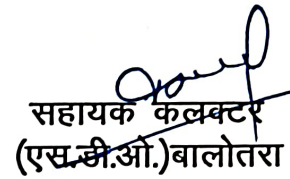 सहायक कलक्टर
(एस.डी.ओ.)बालोतरा